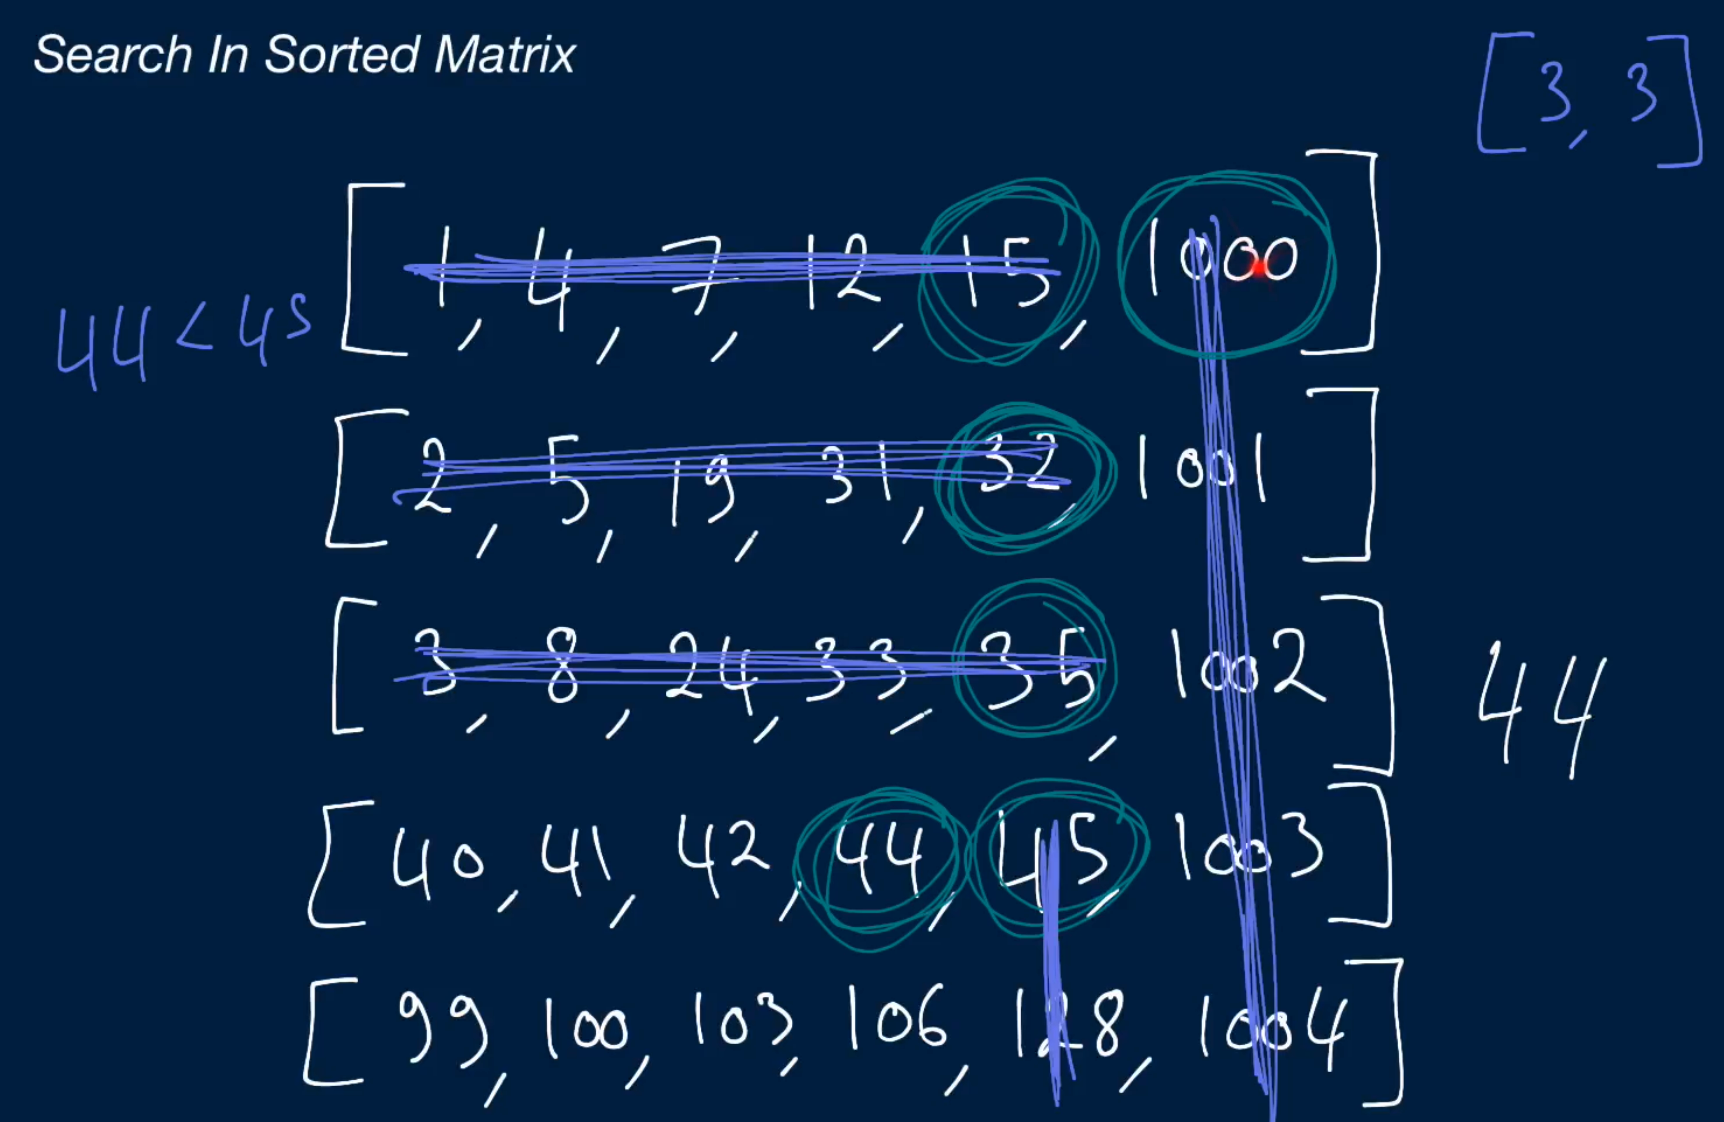 Search In Sorted Matrix
[3, 3]
[1, 4, 7, 12, 15, 1000]
44 < 45
[2, 5, 19, 31, 32, 1001]
[3, 8, 24, 33, 35, 1002]
44
[40, 41, 42, 44, 45, 1003]
[99, 100, 103, 106, 128, 1004]